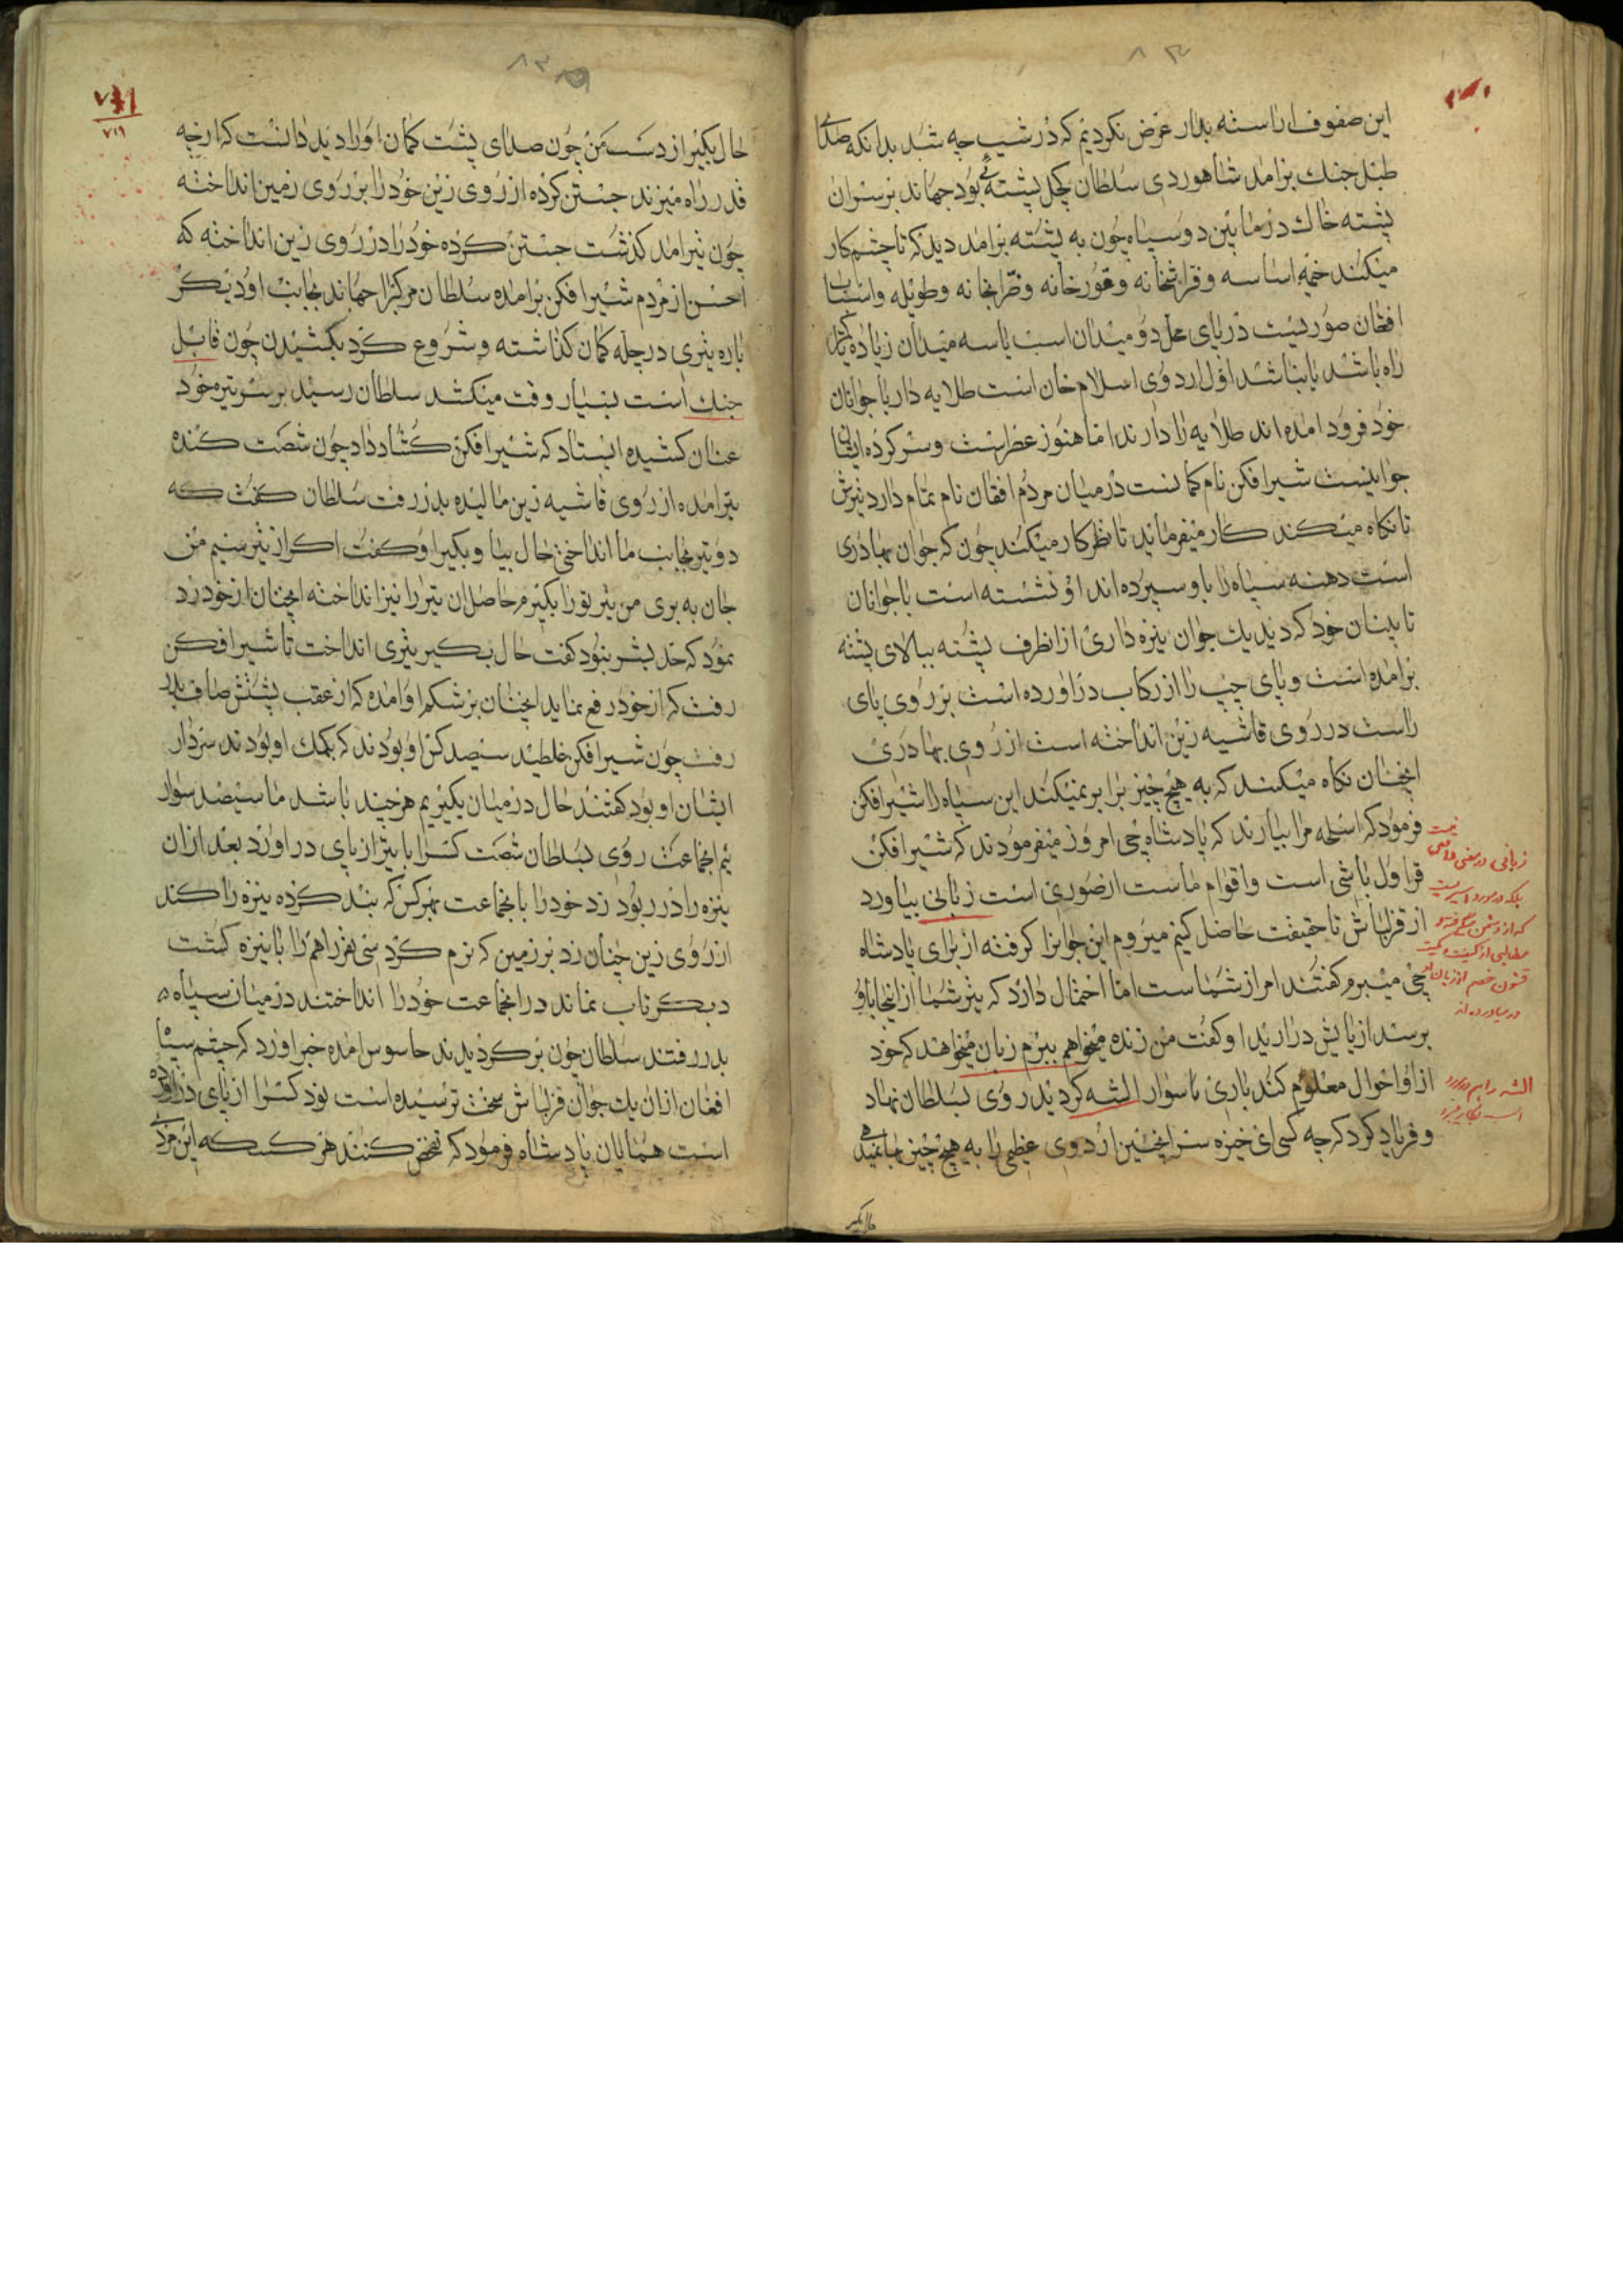 این صفوف اراسته بدار عرض نکردیم که در شب چه شد بدانکه صدای
طبل جنک برامد شاهوردی سلطان کچل پشتهٔ بود جهاند بر سر ان
پشته خاک در مابین دو سپاه چون به پشته برامد دید که تا چشم کار
میکند خیمه اساسه و فراشخانه و قورخانه و نقارخانه و طویله و اسباب
افغان صوریست دریای محل دو میدان اسب یا سه میدان زیاده
راه باشد یا نباشد اول اردوی اسلام خان است طلایه دار با جوانان
خود فرود امده اند طلایه را دارند اما هنوز عصر است و سر کرده ایشان
جوانیست شیرافکن نام کمانست در میان مردم افغان نام تمام دارد تیرش
تا نکاه میکند کار میفرماید تا نظر کار میکند چون که جوان بهادری
است دهنه سپاه را باو سپرده اند او نشسته است با جوانان
تابینان خود که دید یک جوان نیزه داری از انطرف پشته ببالای پشته
برامده است و پای چپ را از رکاب دراورده است بر روی پای
راست در روی قاشیه زین انداخته است از روی بهادری
انچنان نکاه میکند که به هیچ چیز برابر نمیکند این سپاه را شیرافکن
فرمود که اسلحه مرا بیارند که پادشاه چی امروز میفرمودند که شیرافکن
قراول باشی است و اقوام ماست از ضوری است زبانی بیاورد
از قزلباش تا حقیقت حاصل کنیم میروم این جوانرا کرفته از برای پادشاه
چی میبرم کفتند امر از شماست اما احتمال دارد که تیر شما از اینجا باو
برسد از پایش درارید او کفت من زنده میخواهم ببرم زبان میخواهد که خود
از او احوال معلوم کند باری تا سوار الشه کردید روی بسلطان نهاد
و فریاد کرد که چه کسی ای خیره سر اینچنین اردوی عظیمی را به هیچ چیز
حال بکیر
زبانی در معنی
که از دشمن
قشون خصم از زبان او
در میاورده اند
۷۱۹
حال بکیر از دست من چون صدای پشت کمان او را دید دانست که ارچه
قدر راه میزند جستن کرده از روی زین خود را بر روی زمین انداخته
چون تیر امد کذشت جستن کرده خود را در روی زین انداخته که
احسن از مردم شیرافکن برامده سلطان مرکبرا جهاند بجانب او دیکر
باره تیری در چله کمان کذاشته و شروع کرد بکشیدن چون قابل
جنک است بسیار وقت میکشد سلطان رسید بر سر تیره خود
عنان کشیده ایستاد که شیرافکن کشاد داد چون شصت کنده
تیر امده از روی قاشیه زین مالیده بدر رفت سلطان کفت که
دو تیر بجانب ما انداختی حال بیا و بکیر او کفت اکر از تیر سیم من
جان به بری من تیر تو را بکیرم حاصل ان تیر را نیز انداخته انچنان از خود رد
نمود که حد بشر نبود کفت حال بکیر تیری انداخت تا شیرافکن
رفت که از خود رفع نماید انچنان بر شکم او امده که از عقب پشتش صاف بدر
رفت چون شیرافکن غلطید سیصد کس او بودند که بکمک او بودند سردار
ایشان او بود کفتند حال در میان بکیریم هر چند باشد ما سیصد سوار
ئیم انجماعت روی بسلطان شصت کسرا با تیر از پای دراورد بعد ازان
نیزه را در ربود زد خود را بانجماعت بهر کس که بند کرده نیزه را کند
از روی زین چنان زد بر زمین که نرم کرد سی نفر را هم را با نیزه کشت
دیکر تاب نماند در انجماعت خود را انداختند در میان سپاه ه
بدر رفتند سلطان چون بر کردیدند جاسوس امده خبر اورد که چشم سپاه
افغان ازان یک جوان قزلباش سخت ترسیده است نود کسرا از پای دراورده
است همایان پادشاه فرمود که تفحص کنند هر کس که این مرد